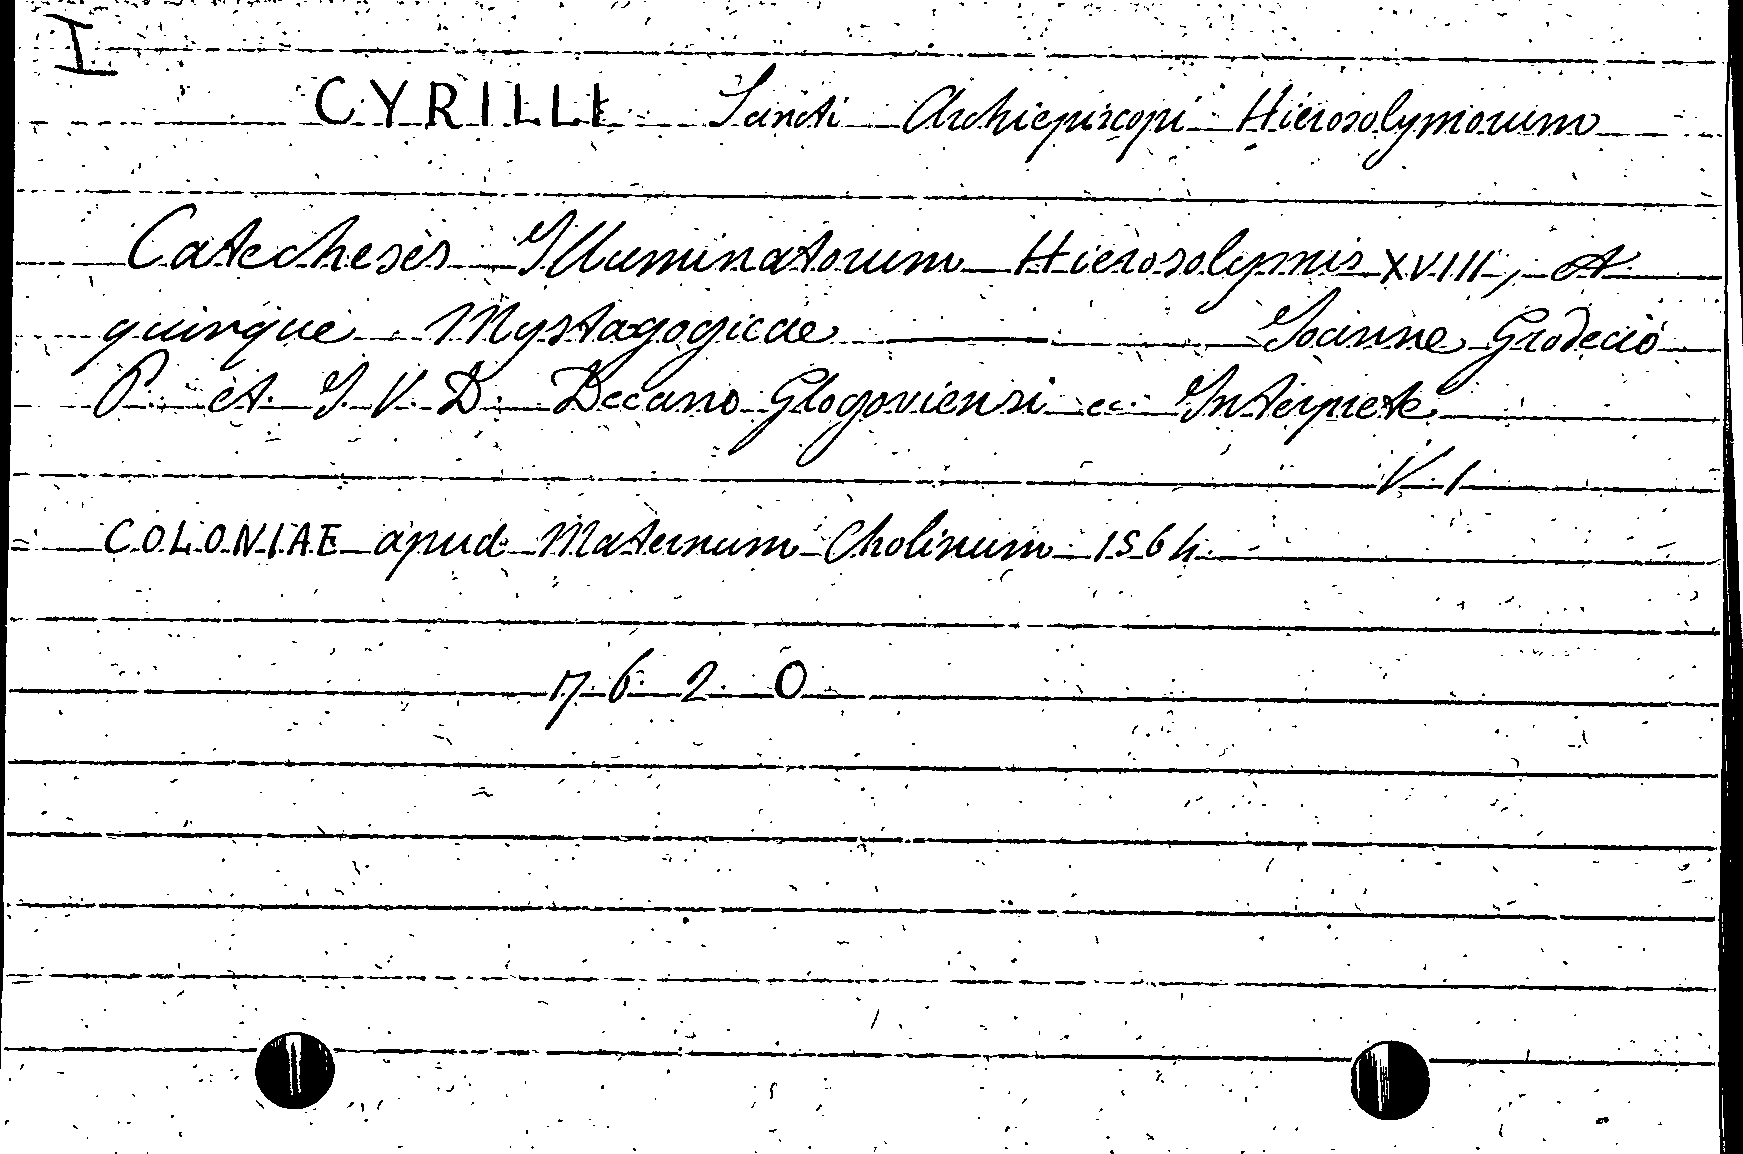 I
CYRILLI Sancti Archiepiscopi Hierosolymorum
Catecheses Illuminatorum Hierosolymis XVIII, et
quinque Mystagogicae ——— Joanne Grodecio
P. et. J. V. D. Decano Glogoviensi ec. Interprete
V. 1
COLONIAE apud Maternum Cholinum 1564
7620